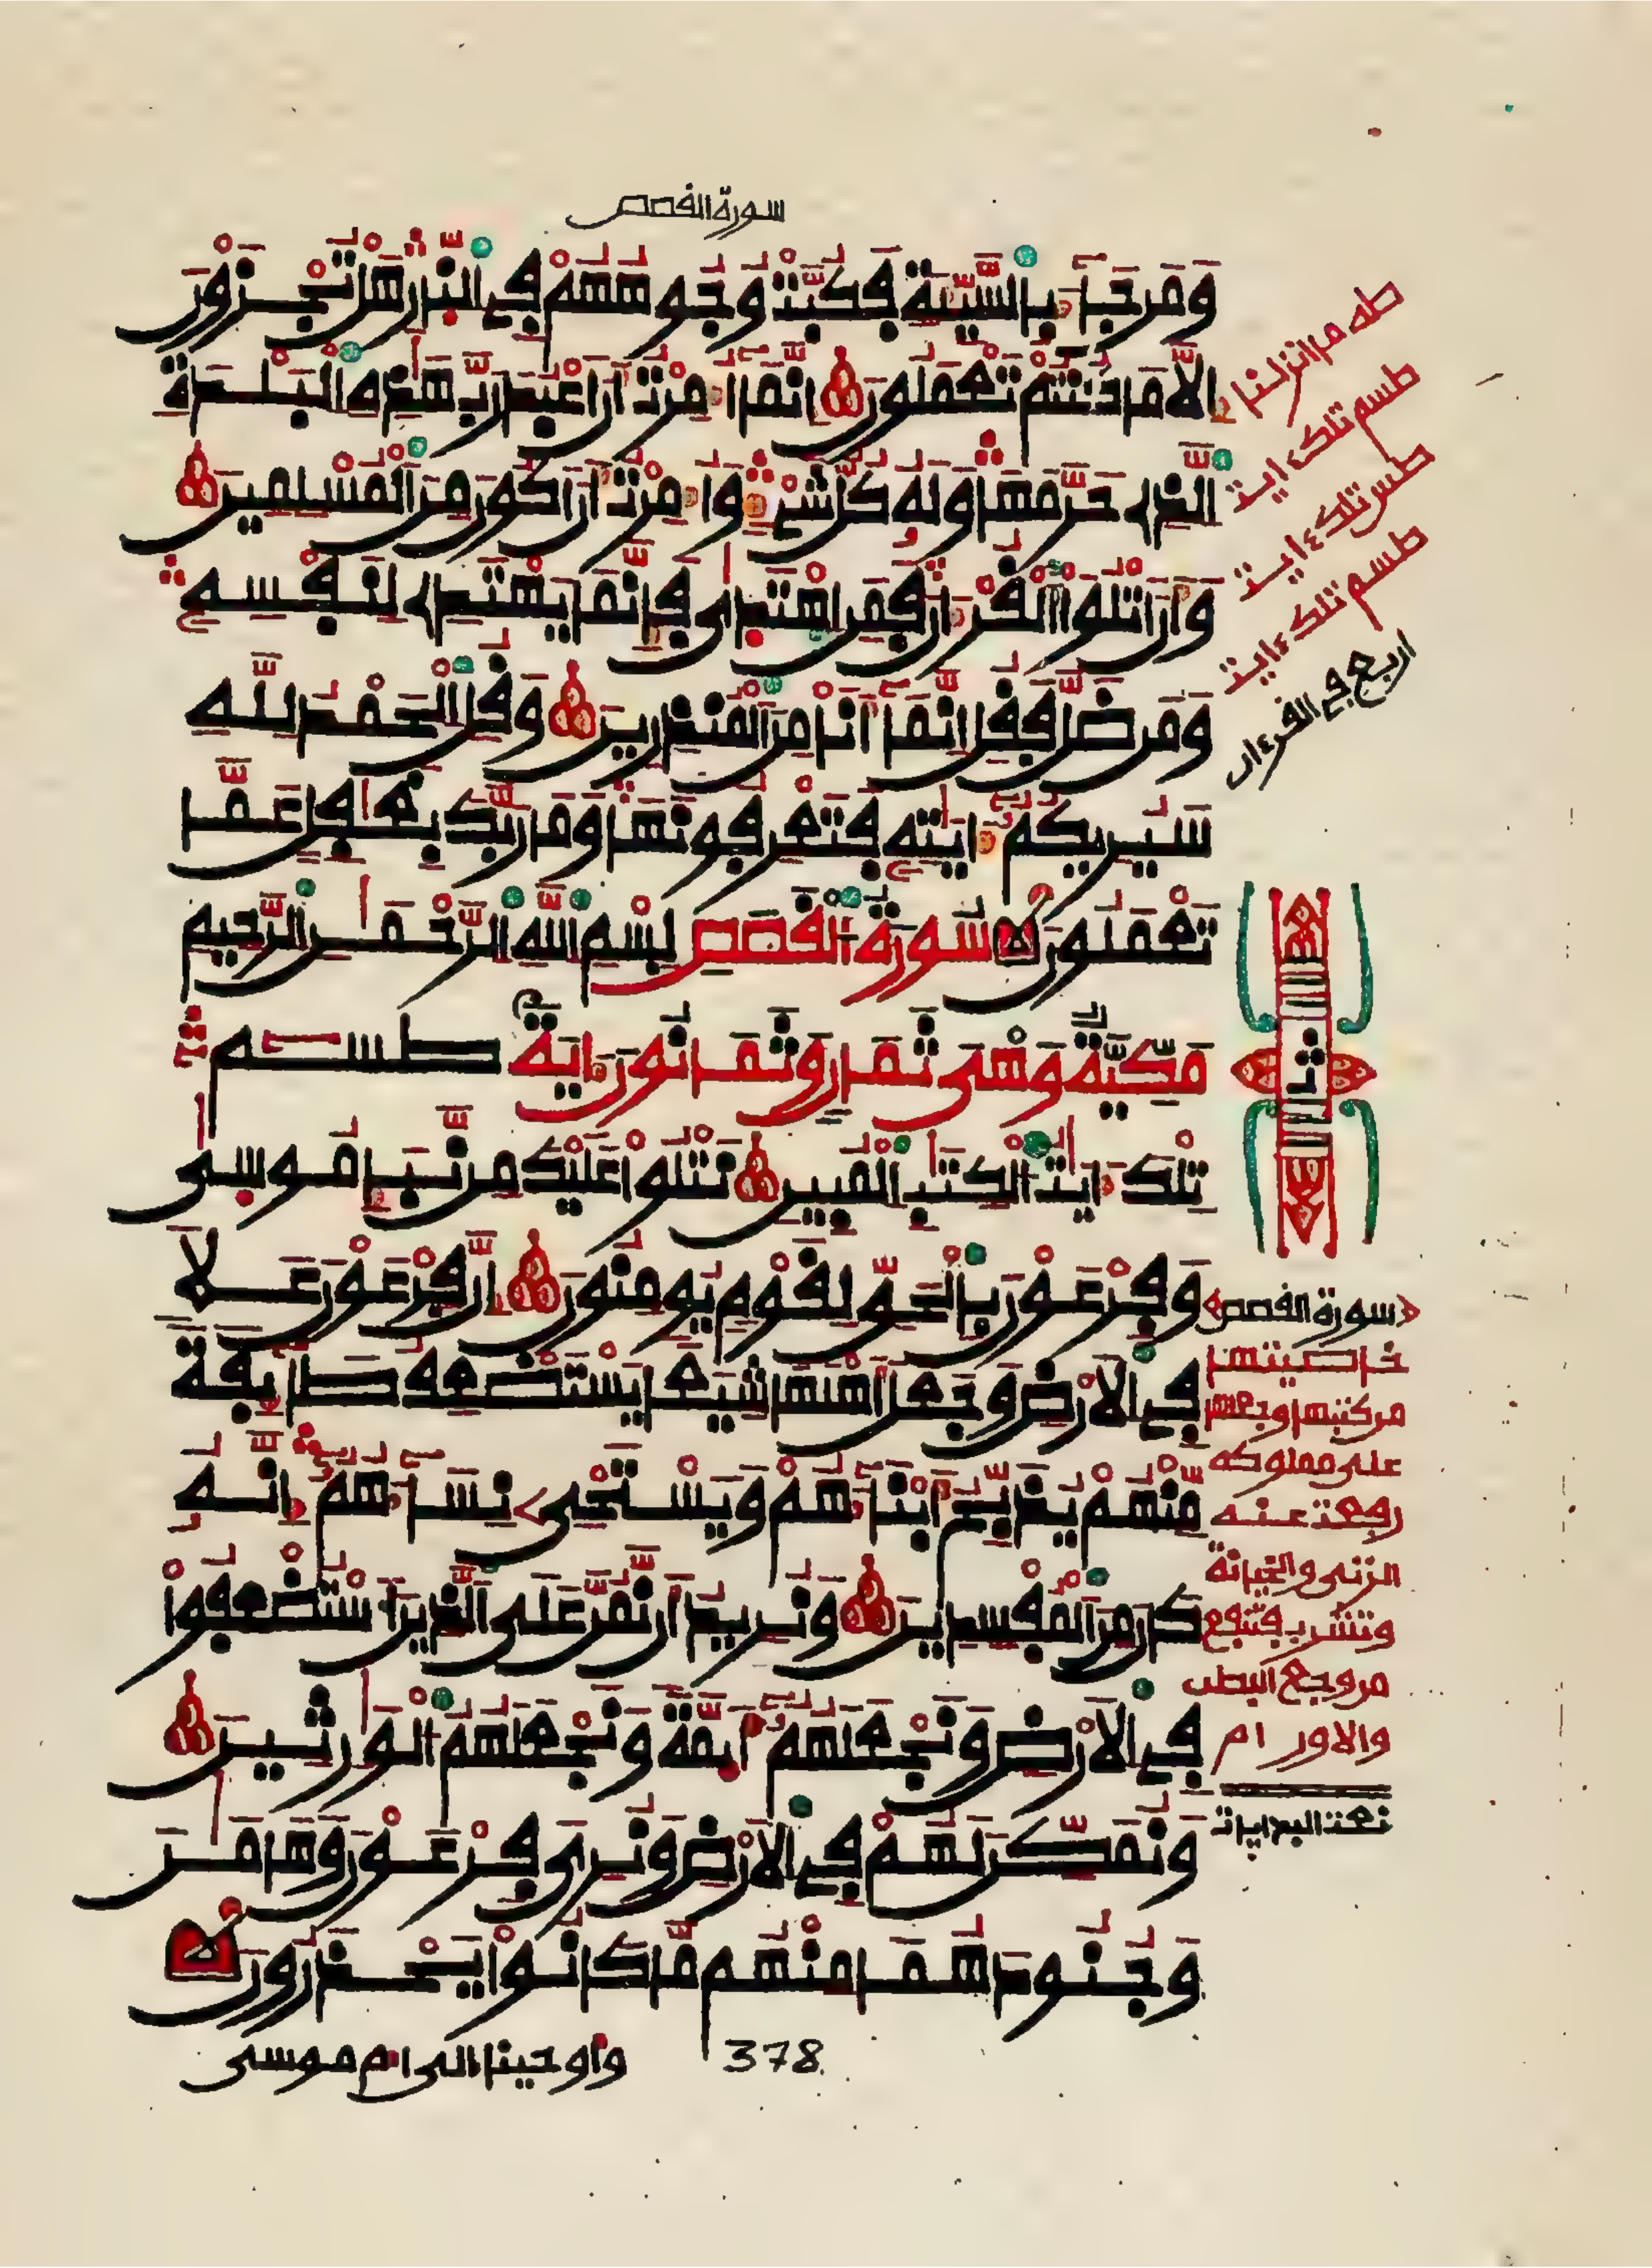 سورة القصص
وَمَن جَآءَ بِالسَّيِّئَةِ فَكُبَّتْ وُجُوهُهُمْ فِي النّارِ هَلْ تُجْزَوْنَ
إِلَّا مَا كُنتُمْ تَعْمَلُونَ إِنَّمَآ أُمِرْتُ أَنَ اَعْبُدَ رَبَّ هَذِهِ الْبَلْدَةِ
الَّذِي حَرَّمَهَا وَلَهُ كُلُّ شَيْءٍ وَأُمِرْتُ أَنَ اَكُونَ مِنَ الْمُسْلِمِينَ
وَأَنَ اَتْلُوَاْ الْقُرْءَانَ فَمَنِ اهْتَدَى فَإِنَّمَا يَهْتَدِي لِنَفْسِهِ
وَمَن ضَلَّ فَقُلِ انَّمَآ أَنَا مِنَ الْمُنذِرِينَ وَقُلِ الْحَمْدُ لِلَّهِ
سَيُرِيكُمُ ءَايَتِهِ فَتَعْرِفُونَهَا وَمَا رَبُّكَ بِغَفِلٍ عَمَّا
تَعْمَلُونَ سُورَةُ الْقَصَصِ بِسْمِ اللهِ الرَّحْمَنِ الرَّحِيمِ
مَكِّيَّةٌ وَهْيَ ثَمَانٍ وَثَمَانُونَ ءَايَةً طسم
تِلْكَ ءَايَتُ الْكِتَبِ الْمُبِينِ نَتْلُواْ عَلَيْكَ مِن نَّبَإِ مُوسَى
وَفِرْعَوْنَ بِالْحَقِّ لِقَوْمٍ يُومِنُونَ إِنَّ فِرْعَوْنَ عَلَا
فِي الْأَرْضِ وَجَعَلَ أَهْلَهَا شِيَعًا يَسْتَضْعِفُ طَآئِفَةً
مِّنْهُمْ يُذَبِّحُ أَبْنَآءَهُمْ وَيَسْتَحْيِي نِسَآءَهُمُ إِنَّهُ
كَانَ مِنَ الْمُفْسِدِينَ وَنُرِيدُ أَن نَّمُنَّ عَلَى الَّذِينَ اسْتُضْعِفُواْ
فِي الْأَرْضِ وَنَجْعَلَهُمُ أَئِمَّةً وَنَجْعَلَهُمُ الْوَرِثِينَ
وَنُمَكِّنَ لَهُمْ فِي الْأَرْضِ وَنُرِيَ فِرْعَوْنَ وَهَامَنَ
وَجُنُودَهُمَا مِنْهُم مَّا كَانُواْ يَحْذَرُونَ
وأوحينا الى ام موسى
378
طه ما انزلنا
طسم تلك ءايت
طس تلك ءايت
طسم تلك ءايت
اربع في القرءان
ثمن
سورة القصص
خاصيتها
من كتبها وجعلها
على مملوكه
رفعت عنه
الزنى والخيانة
وتشرب فتنفع
من وجع البطن
والاورام
نعت البدايات